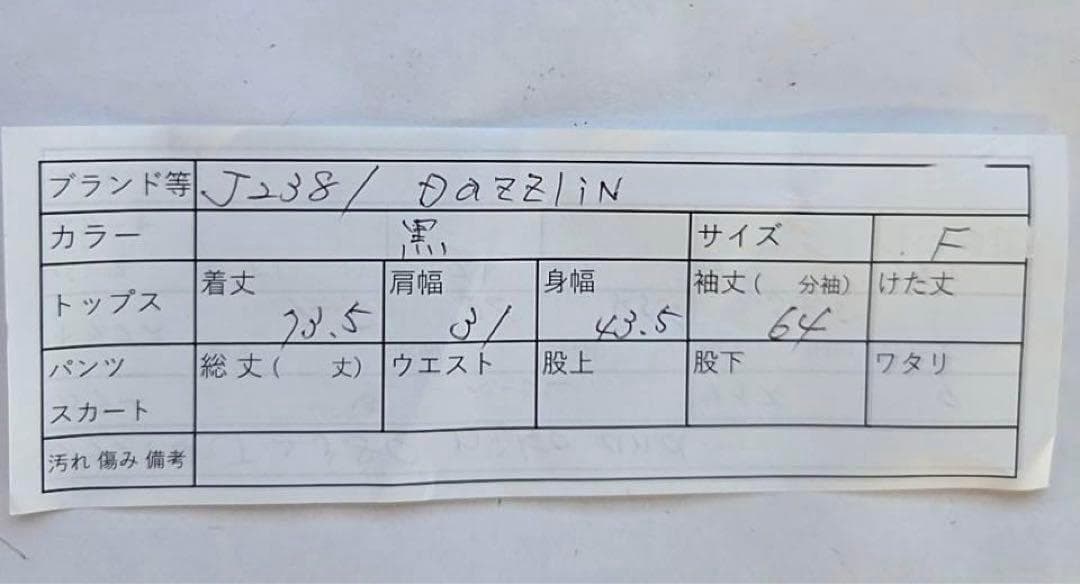 ブランド等 J2381 DazzliN
カラー 黒 サイズ F
トップス 着丈 73.5 肩幅 31 身幅 43.5 袖丈( 分袖) 64 けた丈
パンツ スカート 総丈( 丈) ウエスト 股上 股下 ワタリ
汚れ 傷み 備考